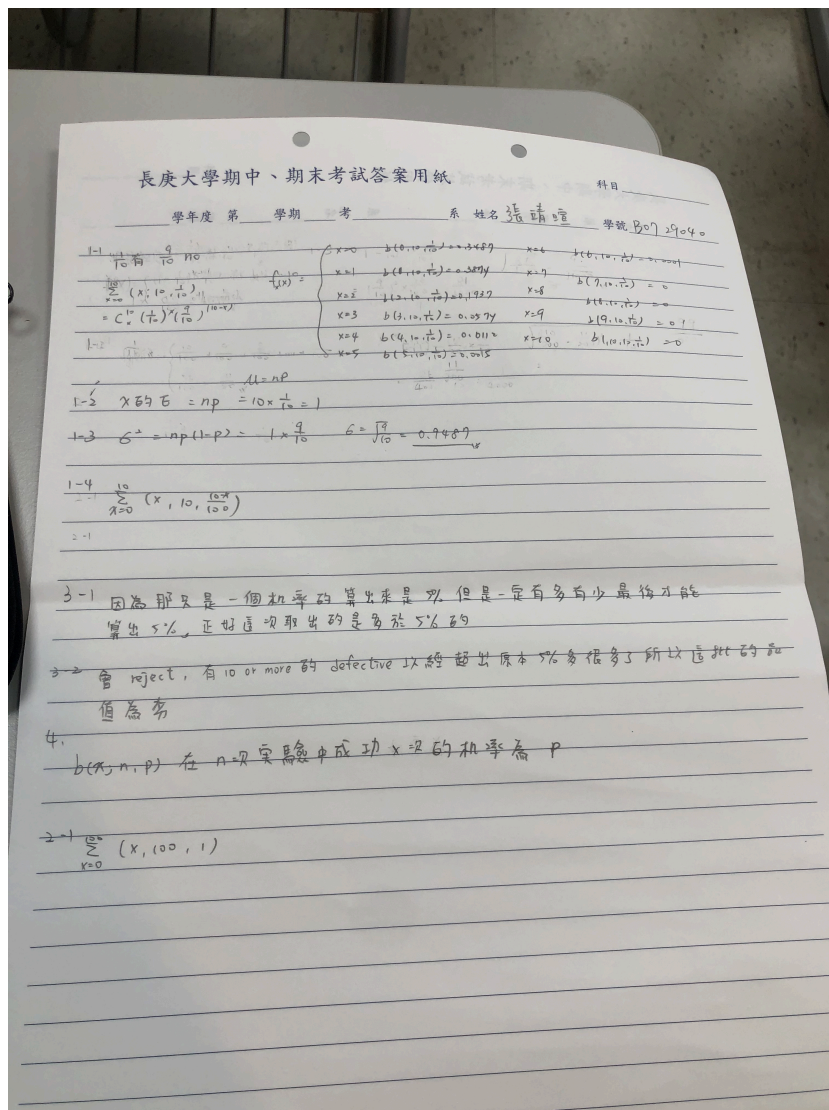 長庚大學期中、期末考試答案用紙
科目
學年度 第 學期 考 系 姓名 張靖 學號 B0729040
1-1 1/10 有 9/10 no
∑ x=0 10 (x; 10, 1/10)
= C x 10 (1/10)^x (9/10)^(10-x)
f(x) =
x=0 b(0,10,1/10)=0.3487
x=1 =0.3874
x=2 b(2,10,1/10)=0.1937
x=3 b(3,10,1/10)=0.0574
x=4 b(4,10,1/10)=0.0112
x=5 b(5,10,1/10)=0.0015
x=6 b(6,10,1/10)=0.0001
x=7 b(7,10,1/10)=0
x=8 =0
x=9 b(9,10,1/10)=0
x=10 =0
1-2
μ=np
1-2 x的E =np =10×1/10=1
1-3 σ²=np(1-p)= 1×9/10 σ=√9/10=0.9487
1-4 ∑ x=0 10 (x, 10, 10-x/100)
2-1
3-1 因為那只是一個机率的算出來是5% 但是一定有多有少最後才能
算出5%, 正好這次取出的是多於5%的
3-2 會 reject, 有 10 or more 的 defective 以經超出原本5%多很多了所以這 的品
值為劣
4.
b(x; n, p) 在 n次實驗中成功x次的机率為 p
2-1 ∑ x=0 100 (x, 100, 1)